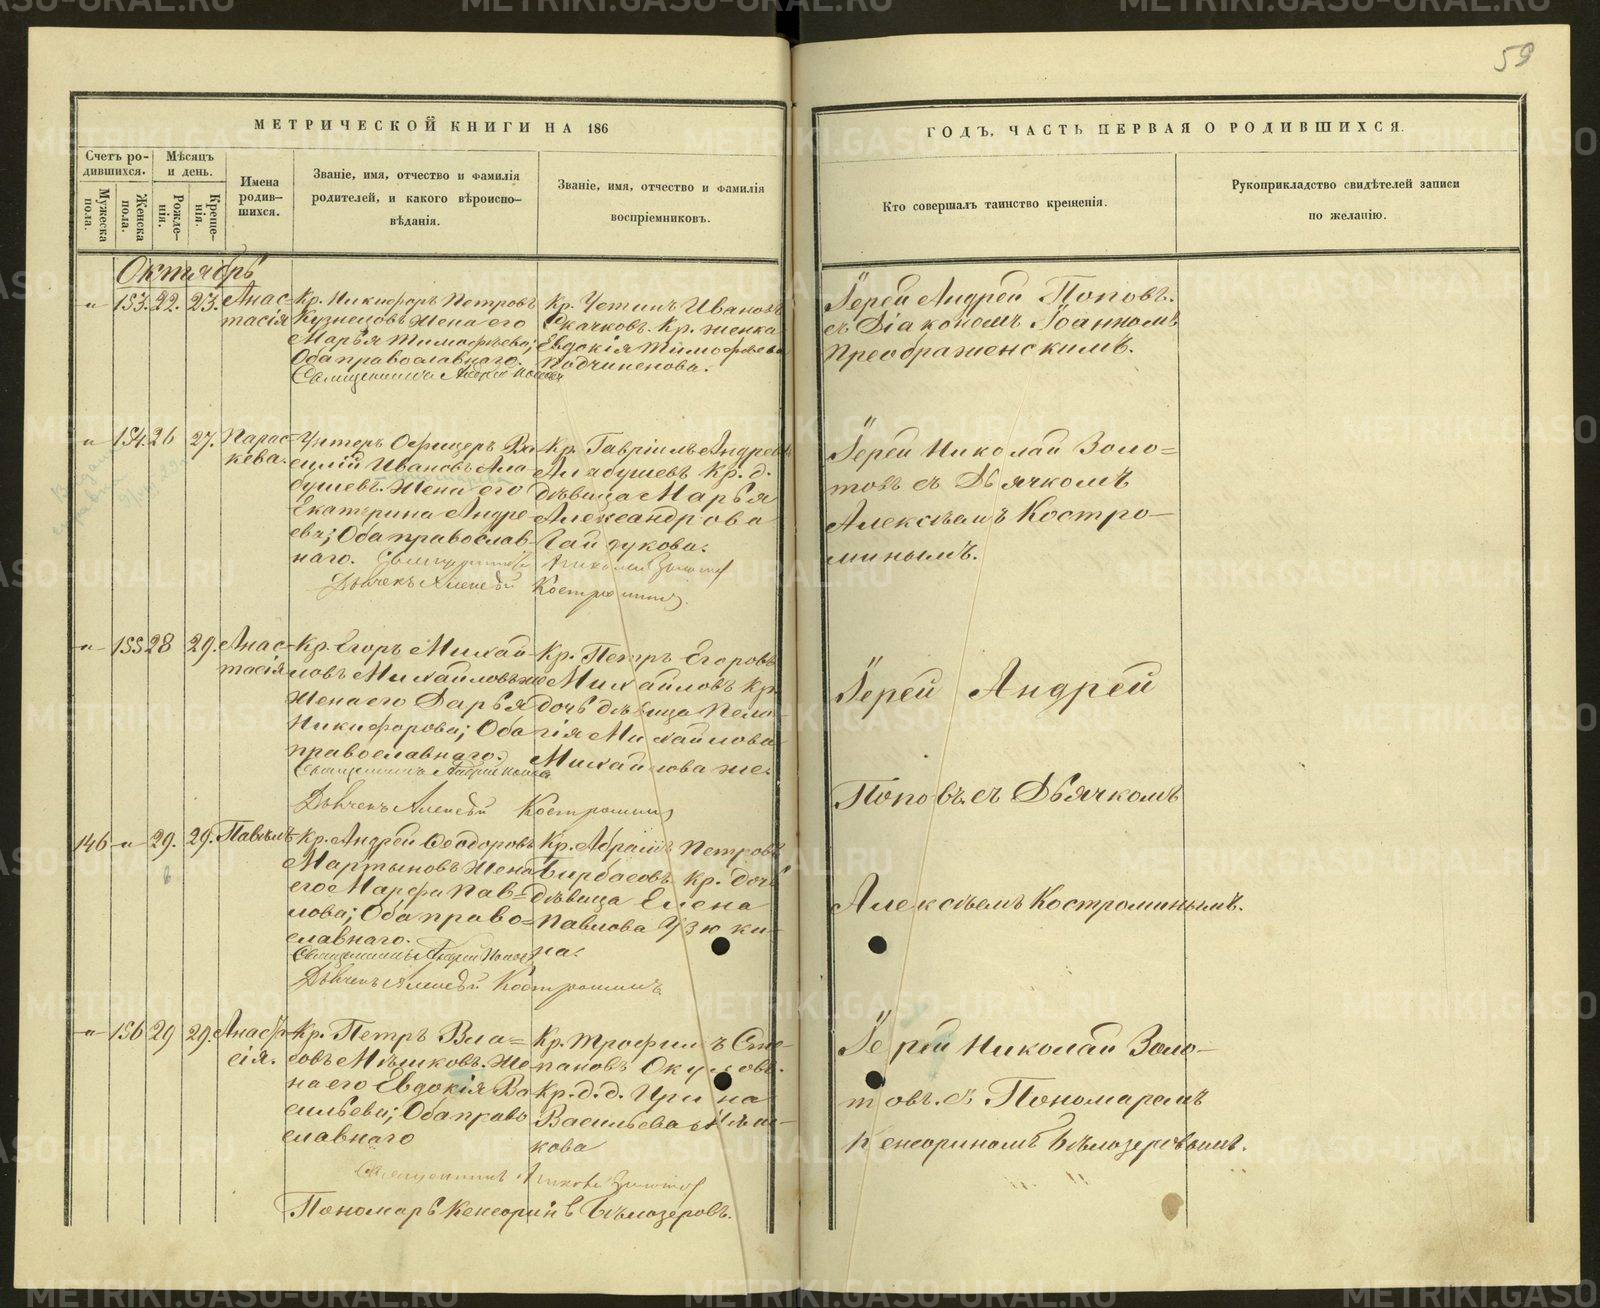 59
МЕТРИЧЕСКОЙ КНИГИ НА 186
ГОДЪ, ЧАСТЬ ПЕРВАЯ О РОДИВШИХСЯ.
Счетъ ро-
дившихся.
Мужеска
пола.
Женска
пола.
Мѣсяцъ
и день.
Рожде-
нія.
Креще-
нія.
Имена
родив-
шихся.
Званіе, имя, отчество и фамилія
родителей, и какого вѣроиспо-
вѣданія.
Званіе, имя, отчество и фамилія
воспріемниковъ.
Кто совершалъ таинство крещенія.
Рукоприкладство свидѣтелей записи
по желанію.
Октябрь
153. 22. 23. Анас-
тасія
Кр. Никифоръ Петровъ
Кузнецовъ Жена его
Марья Тимофѣева;
Оба православнаго.
Священникъ Андрей Поповъ
Кр. Устинъ Ивановъ
Скачковъ. Кр. женка
Евдокія Тимофѣева
Подчиненова.
Іерей Андрей Поповъ.
съ Діакономъ Іоанномъ
Преображенскимъ.
154. 26 27. Парас-
кева.
Унтеръ Офицеръ Ва
силій Ивановъ Ала
бушевъ. Жена его
Екатерина Андре-
ева; Оба православ-
наго.
Священникъ Николай Золотовъ
Дьячекъ Алексѣй Костроминъ
Кр. Гавріилъ Андреевъ
Алабушевъ Кр. д.
дѣвица Марья
Александрова
Гайдукова.
Іерей Николай Золо-
товъ съ Дьячкомъ
Алексѣемъ Костро-
минымъ.
155 28 29. Анас-
тасія
Кр. Егоръ Михай-
ловъ Михайловъ же
Жена его Дарья
Никифорова; Оба
православнаго.
Священникъ Андрей Поповъ
Дьячекъ Алексѣй Костроминъ
Кр. Петръ Егоровъ
Михайловъ Кр.
дочь дѣвица Пела-
гія Михайлова
Михайлова же.
Іерей Андрей
Поповъ съ Дьячкомъ
Алексѣемъ Костроминымъ.
146 29. 29. Павелъ
Кр. Андрей Ѳеодоровъ
Мартыновъ Жена
его Марфа Пав-
лова; Оба право-
славнаго.
Священникъ Андрей Поповъ
Дьячекъ Алексѣй Костроминъ
Кр. Абрамъ Петровъ
Бирбасовъ. Кр. дочь
дѣвица Елена
Павлова Узюки-
на.
156 29 29. Анаста-
сія.
Кр. Петръ Вла-
совъ Мѣшковъ. Же
на его Евдокія Ва
сильева; Оба право
славнаго
Священникъ Николай Золотовъ
Пономарь Кенсоринъ Бѣлозеровъ.
Кр. Трофимъ Сте-
пановъ Окуловъ.
Кр. д. д. Ирина
Васильева Мѣш-
кова
Іерей Николай Золо-
товъ. съ Пономаремъ
Кенсориномъ Бѣлозеровымъ.